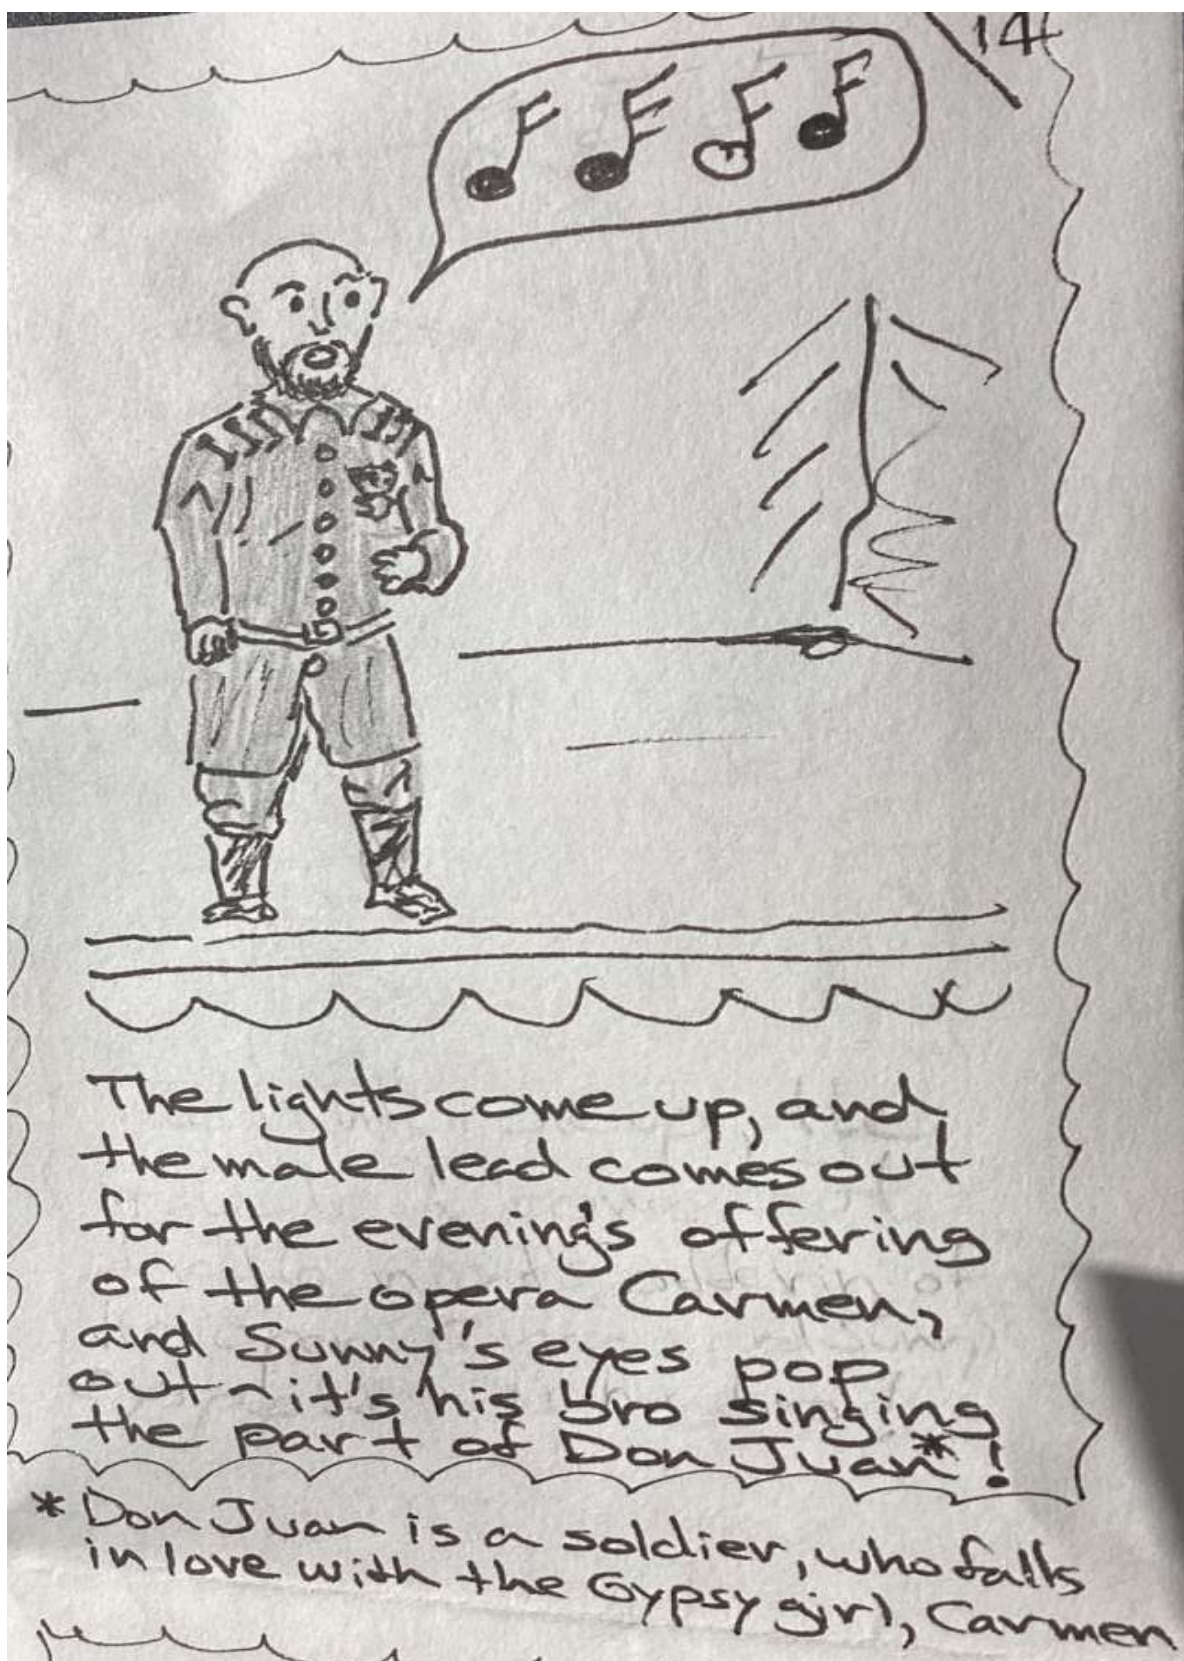 14
The lights come up, and
the male lead comes out
for the evening's offering
of the opera Carmen,
and Sunny's eyes pop
out - it's his bro singing
the part of Don Juan*!
* Don Juan is a soldier, who falls
in love with the Gypsy girl, Carmen